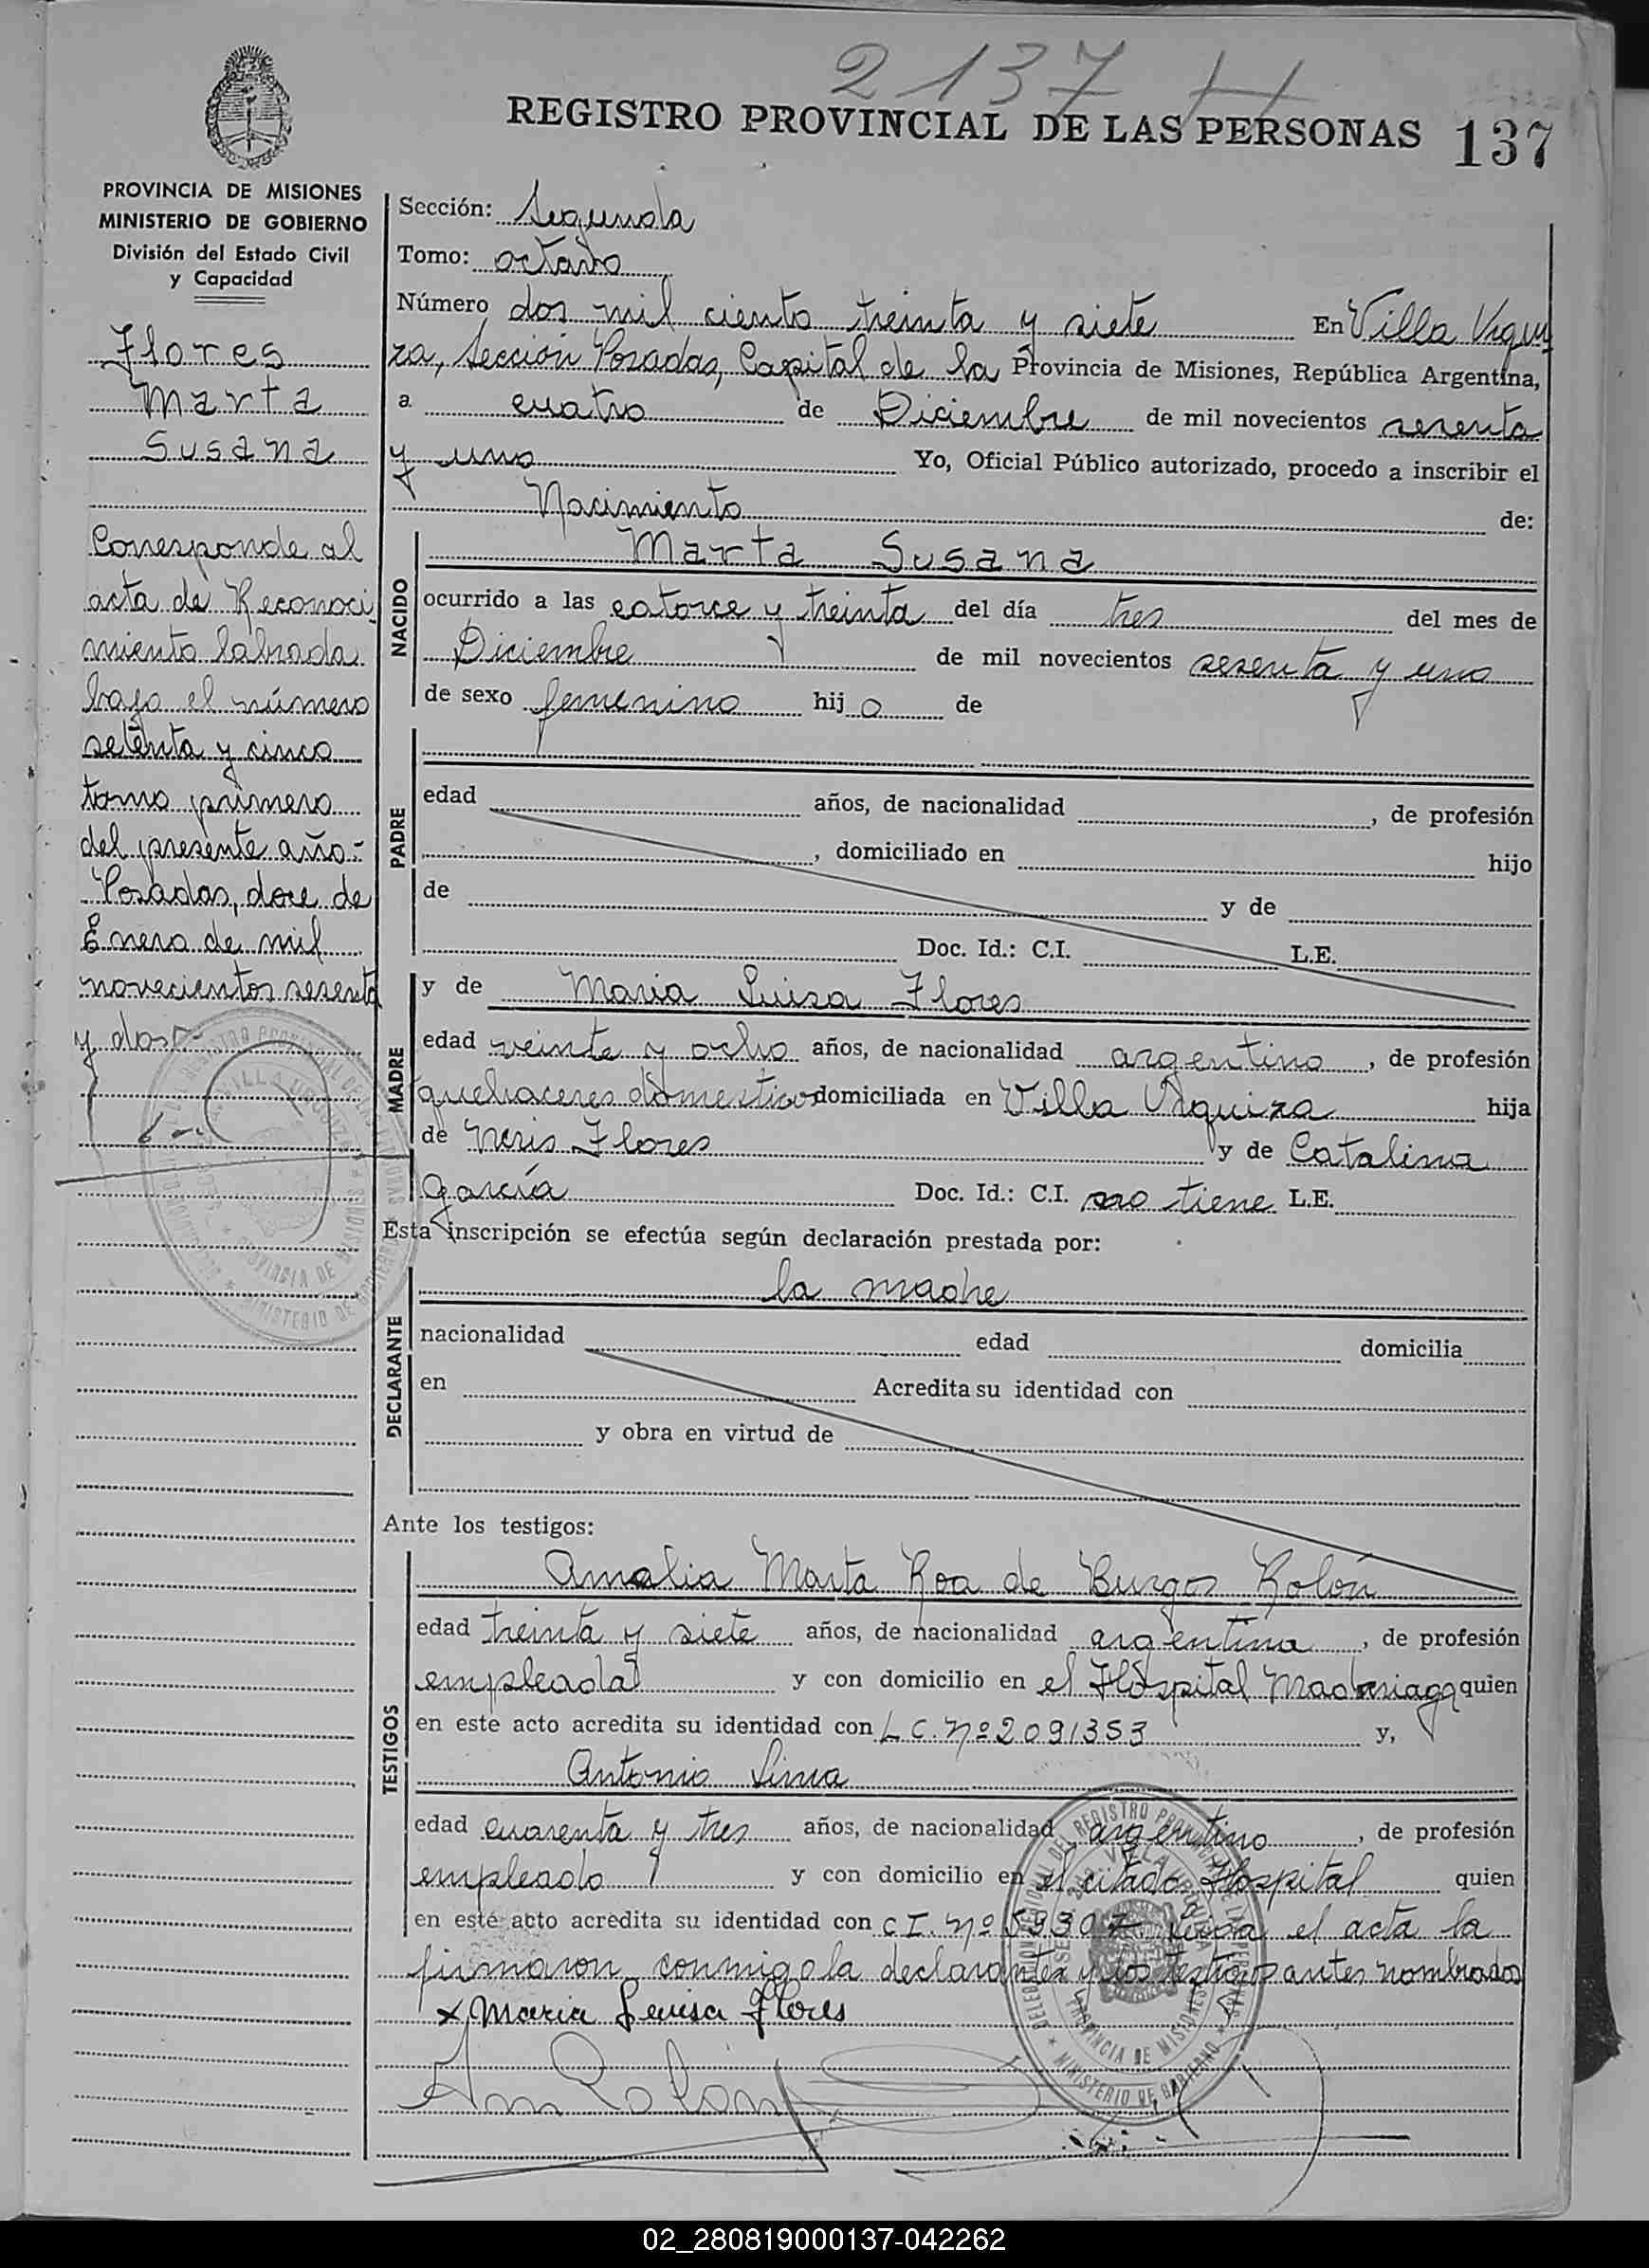 2137 H
REGISTRO PROVINCIAL DE LAS PERSONAS 137
PROVINCIA DE MISIONES
MINISTERIO DE GOBIERNO
División del Estado Civil
y Capacidad
Flores
Marta
Susana
Corresponde al
acta de Reconoci
miento labrada
bajo el número
setenta y cinco
tomo primero
del presente año.-
Posadas, doce de
Enero de mil
novecientos sesenta
y dos.-
Sección: Segunda
Tomo: octavo
Número dos mil ciento treinta y siete En Villa Urqui
za, Sección Posadas, Capital de la Provincia de Misiones, República Argentina,
a cuatro de Diciembre de mil novecientos sesenta
y uno Yo, Oficial Público autorizado, procedo a inscribir el
Nacimiento de:
NACIDO
Marta Susana
ocurrido a las catorce y treinta del día tres del mes de
Diciembre de mil novecientos sesenta y uno
de sexo femenino hijo de
PADRE
edad años, de nacionalidad , de profesión
, domiciliado en hijo
de y de
Doc. Id.: C.I. L.E.
MADRE
y de Maria Luisa Flores
edad veinte y ocho años, de nacionalidad argentino, de profesión
quehaceres domestico domiciliada en Villa Urquiza hija
de Neris Flores y de Catalina
García Doc. Id.: C.I. no tiene L.E.
Esta inscripción se efectúa según declaración prestada por:
DECLARANTE
la madre
nacionalidad edad domicilia
en Acredita su identidad con
y obra en virtud de
Ante los testigos:
TESTIGOS
Amalia Marta Roa de Burgos Rolón
edad treinta y siete años, de nacionalidad argentina, de profesión
empleada y con domicilio en el Hospital Madariaga quien
en este acto acredita su identidad con L.C. Nº 2091353 y,
Antonio Lima
edad cuarenta y tres años, de nacionalidad argentino, de profesión
empleado y con domicilio en el citado Hospital quien
en este acto acredita su identidad con C I. Nº 59307 Leida el acta la
firmaron conmigo la declarante y los testigos antes nombrados
x Maria Luisa Flores
Am Rolon
02_280819000137-042262